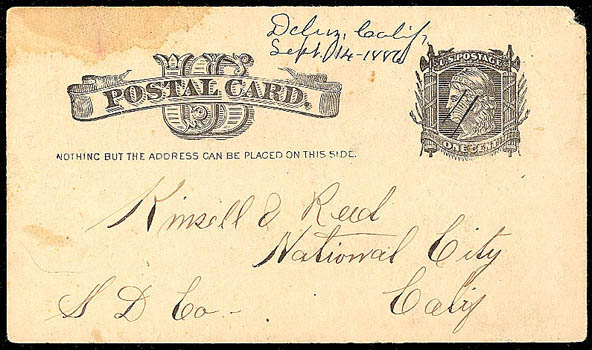 Deluz, Calif,
Sept. 14-1886
US
POSTAL CARD.
U.S. POSTAGE
ONE CENT
NOTHING BUT THE ADDRESS CAN BE PLACED ON THIS SIDE.
Kinsell & Reed
National City
S D Co - Calif